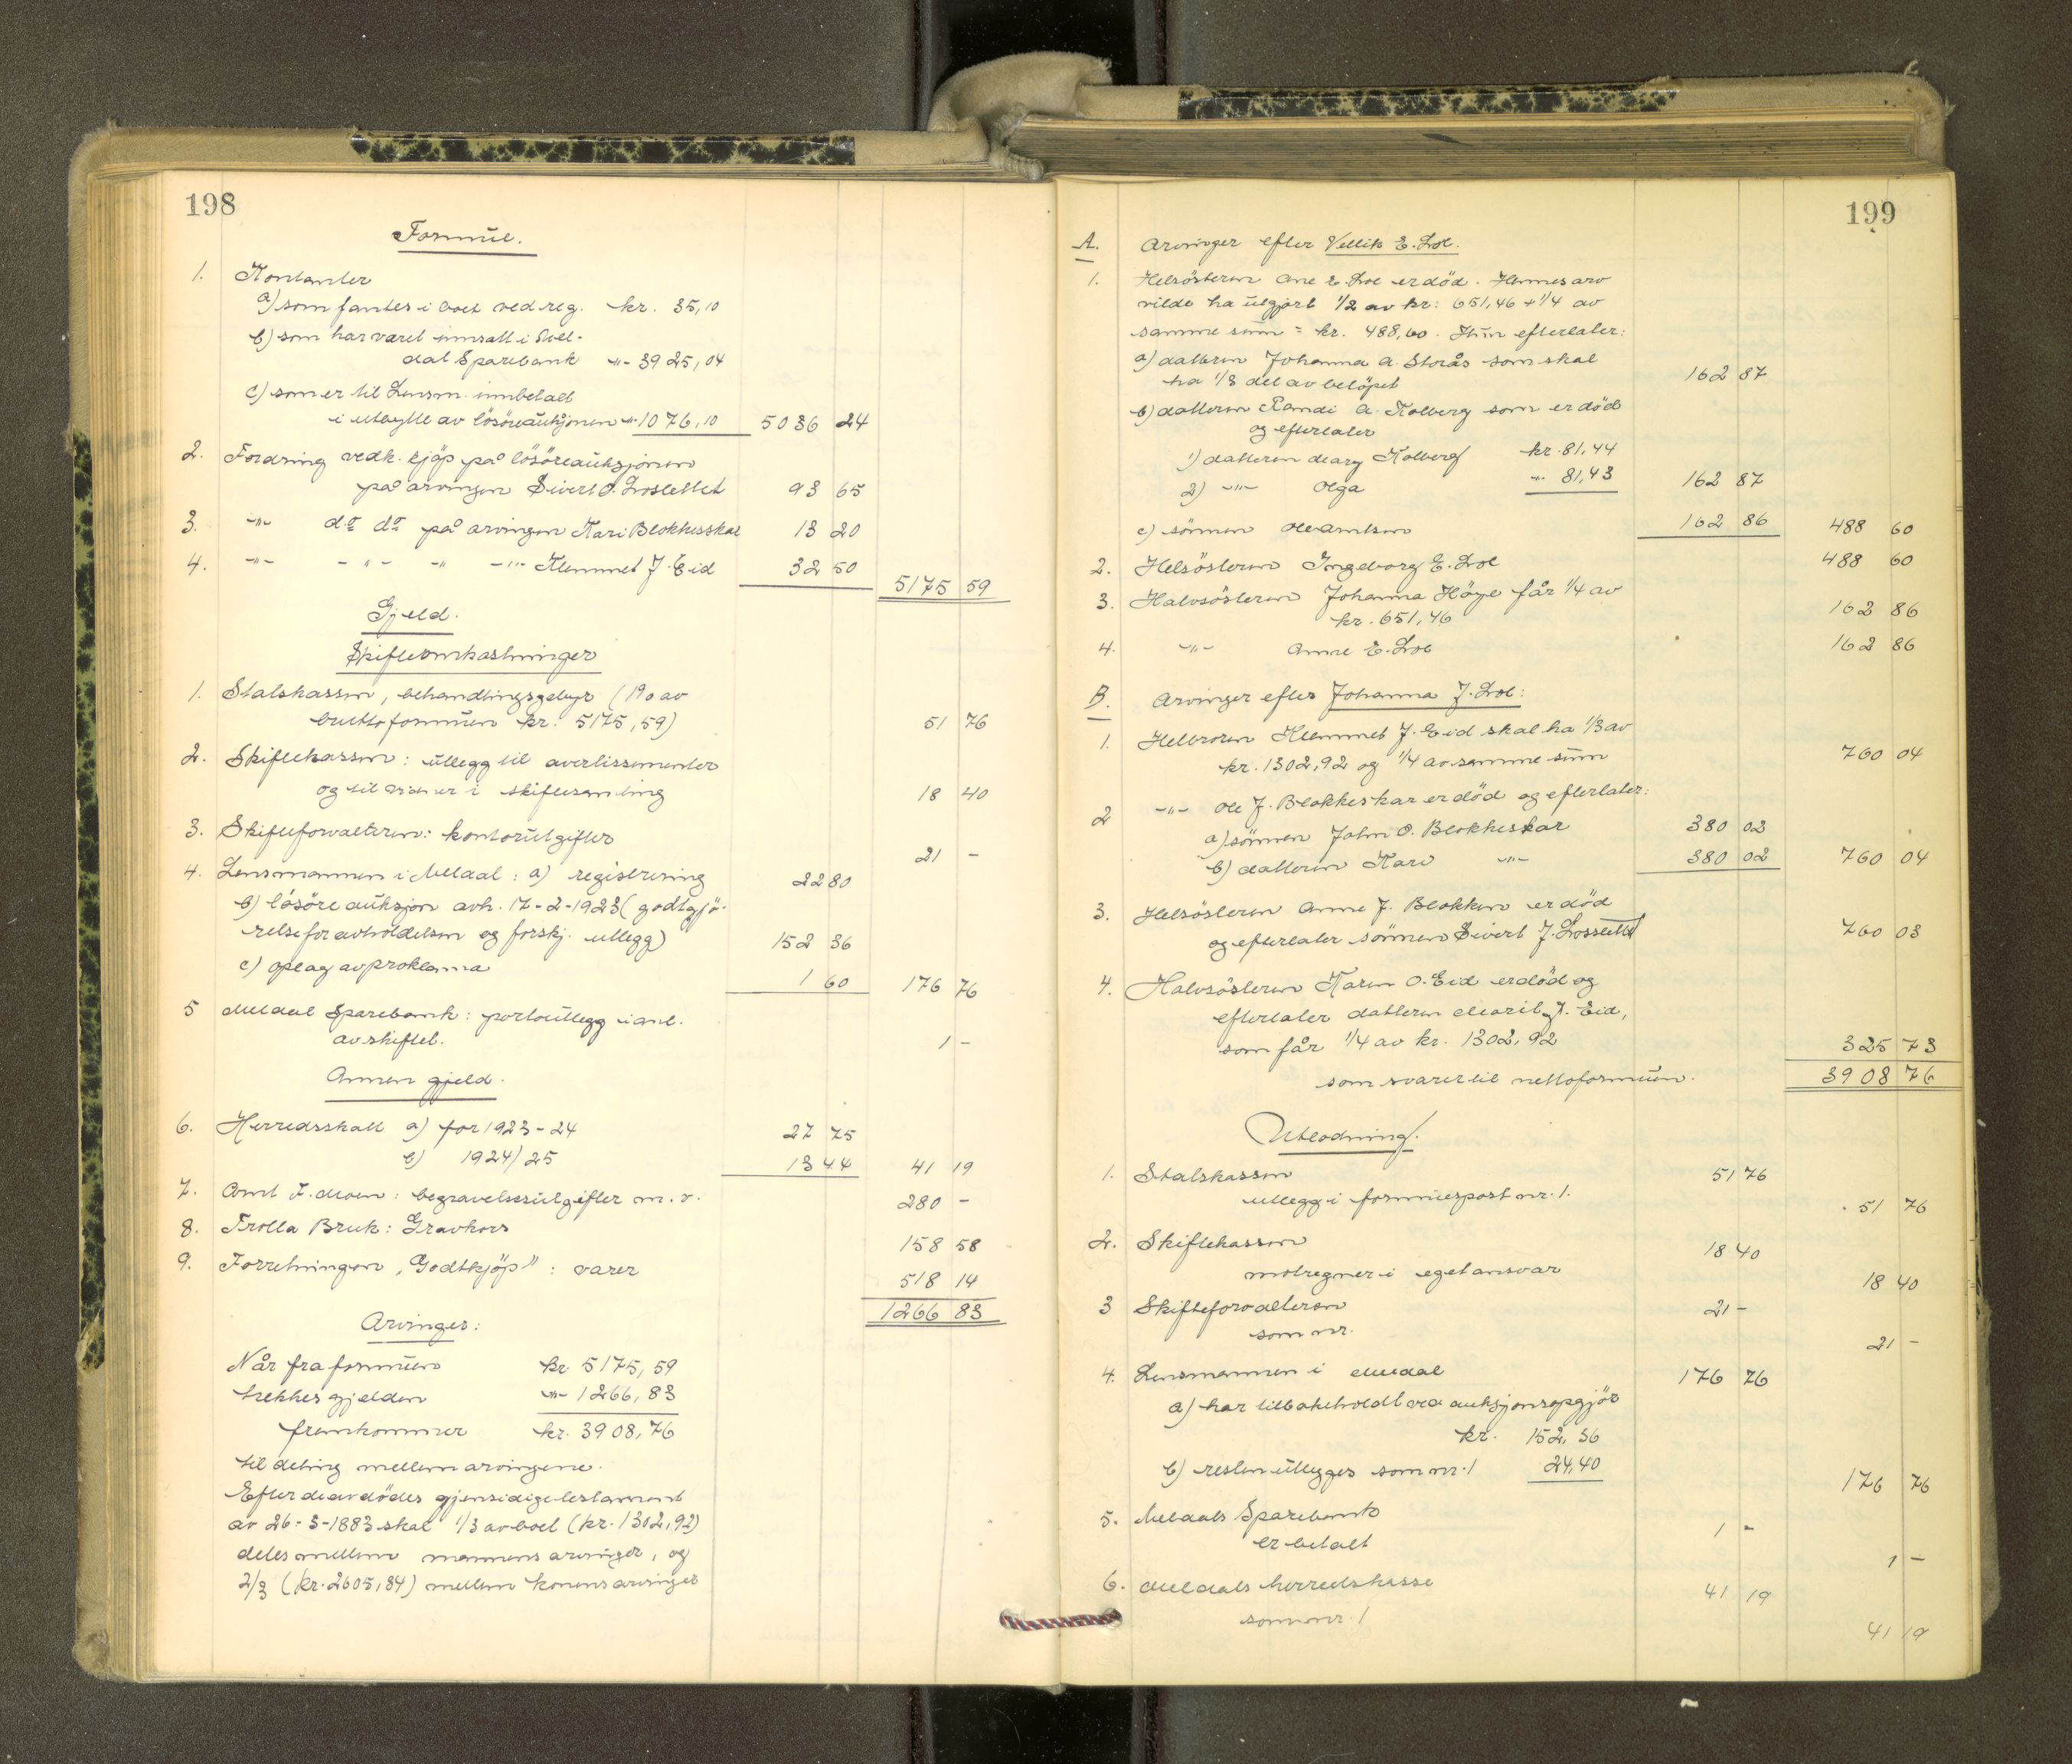 198
Formue.
1. Kontanter
a) som fantes i boet ved reg. kr. 35,10
b) som har vært innsatt i Mel-
dal Sparebank -"- 3925,04
c) som er til Lensm. innbetalt
i utbytte av lösöreauksjonen -"- 1076,10 5036 24
2. Fordring vedk. kjöp på lösöreauksjonen
på arvingen Sivert O. Lossletlet 93 65
3. -"- do do på arvingen Kari Blokkesskar 13 20
4. -"- -"- -"- -"- Klemmet J. Eid 32 50
5175 59
Gjeld.
Skifteomkostninger
1. Statskassen, behandlingsgebyr (1% av
bruttoformuen kr. 5175,59) 51 76
2. Skiftekassen: utlegg til avertissementer
og til vidner i skiftesamling 18 40
3. Skifteforvalteren: kontorutgifter 21 -
4. Lensmannen i Meldal: a) registrering 22 80
b) lösöreauksjon avh. 17-2-1923 (godtgjö-
relse for avholdelsen og forskj. utlegg) 152 36
c) oplag av proklama 1 60 176 76
5 Meldal Sparebank: portoutlegg i anl.
av skiftet. 1 -
Annen gjeld.
6. Herredsskatt a) for 1923-24 27 75
b) 1924/25 13 44 41 19
7. Arnt J. Moen: begravelsesutgifter m. v. 280 -
8. Trolla Bruk: Gravkors 158 58
9. Forretningen "Godtkjöp": varer 518 14
1266 83
Arvinger:
Når fra formuen kr. 5175,59
trekkes gjelden -"- 1266,83
fremkommer kr. 3908,76
til deling mellem arvingene.
Efter de avdödes gjensidige testament
av 26-3-1883 skal 1/3 av boet (kr. 1302,92)
deles mellem mannens arvinger, og
2/3 (kr. 2605,84) mellem konens arvinger
199
A. Arvinger efter E. Loe.
1. Helsösteren Ane E. Loe er död. Hennes arv
vilde ha utgjort 1/2 av kr. 651,46 + 1/4 av
samme sum = kr. 488,60. Hun efterlater:
a) datteren Johanna A. Storås som skal
ha 1/3 del av belöpet 162 87
b) datteren Randi A. Kolberg som er död
og efterlater
1) datteren Mary Kolberg kr. 81,44
2) -"- Olga -"- 81,43 162 87
c) sönnen Ole Arntsen 162 86 488 60
2. Helsösteren Ingeborg E. Loe 488 60
3. Halvsösteren Johanna Höye får 1/4 av
kr. 651,46 162 86
4. -"- Anne E. Loe 162 86
B. Arvinger efter Johanna J. Loe:
1. Helbroren Klemmet J. Eid skal ha 1/3 av
kr. 1302,92 og 1/4 av samme sum 760 04
2 -"- Ole J. Blokkeskar er död og efterlater:
a) sönnen John O. Blokkeskar 380 02
b) datteren Kari -"- 380 02 760 04
3. Helsösteren Anne J. Blokken er död
og efterlater sönnen Sivert J. Losslettet 760 03
4. Halvsösteren Karen O. Eid er död og
efterlater datteren Marit J. Eid,
som får 1/4 av kr. 1302,92 325 73
som svarer til nettoformuen. 3908 76
Utlodning.
1. Statskassen 51 76
utlegg i formuespost nr. 1. 51 76
2. Skiftekassen 18 40
motregner i eget ansvar 18 40
3 Skifteforvalteren 21 -
som nr. 21 -
4. Lensmannen i Meldal 176 76
a) har tilbakeholdt ved auksjonsopgjör
kr. 152,36
b) resten utlegges som nr. 1 24,40 176 76
5. Meldals Sparebank 1 -
er betalt 1 -
6. Meldals herredskasse 41 19
som nr. 1 41 19